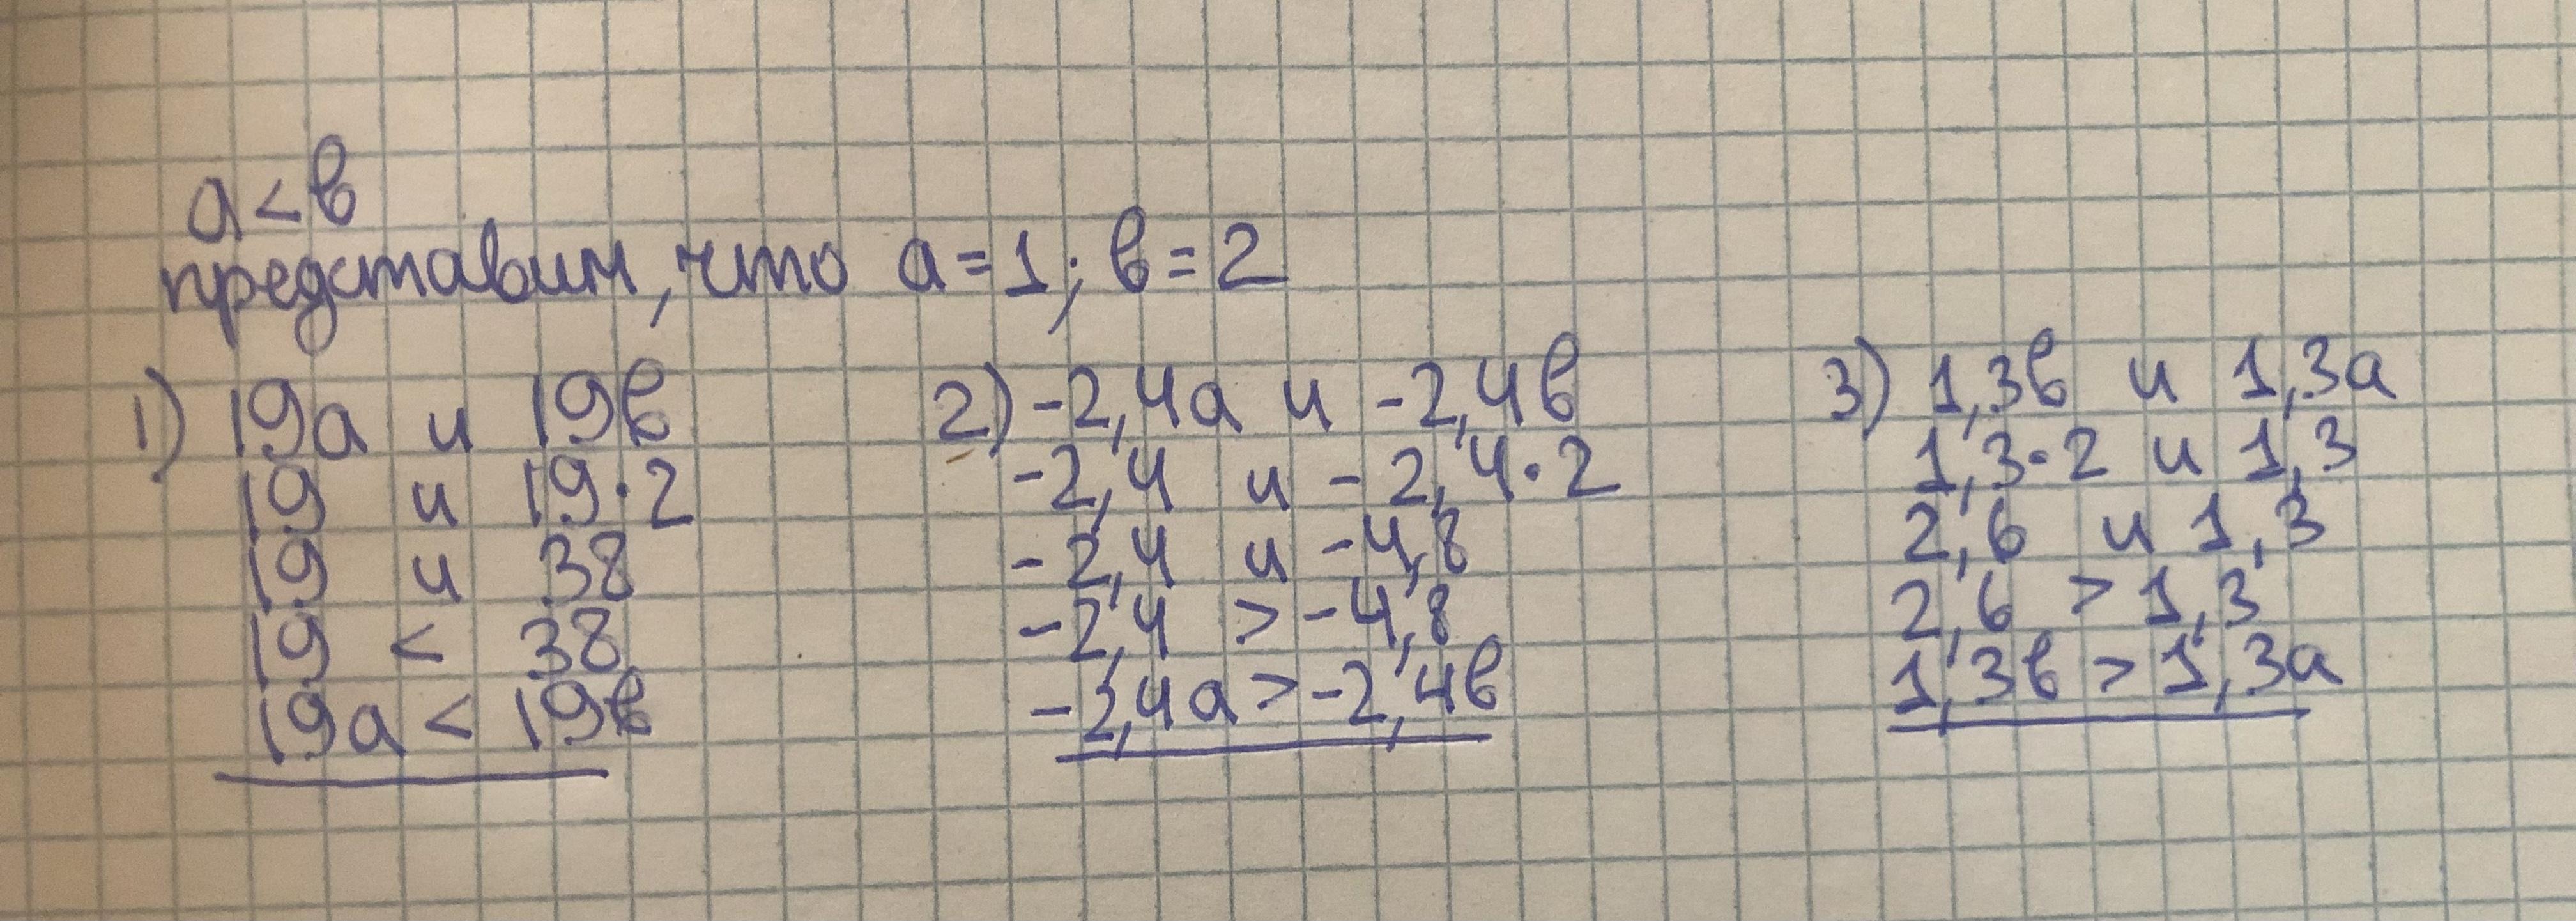 a<b
представим, что a=1; b=2
1) 19a и 19b
19 и 19·2
19 и 38
19 < 38
19a < 19b
2) -2,4a и -2,4b
-2,4 и -2,4·2
-2,4 и -4,8
-2,4 > -4,8
-2,4a > -2,4b
3) 1,3b и 1,3a
1,3·2 и 1,3
2,6 и 1,3
2,6 > 1,3
1,3b > 1,3a